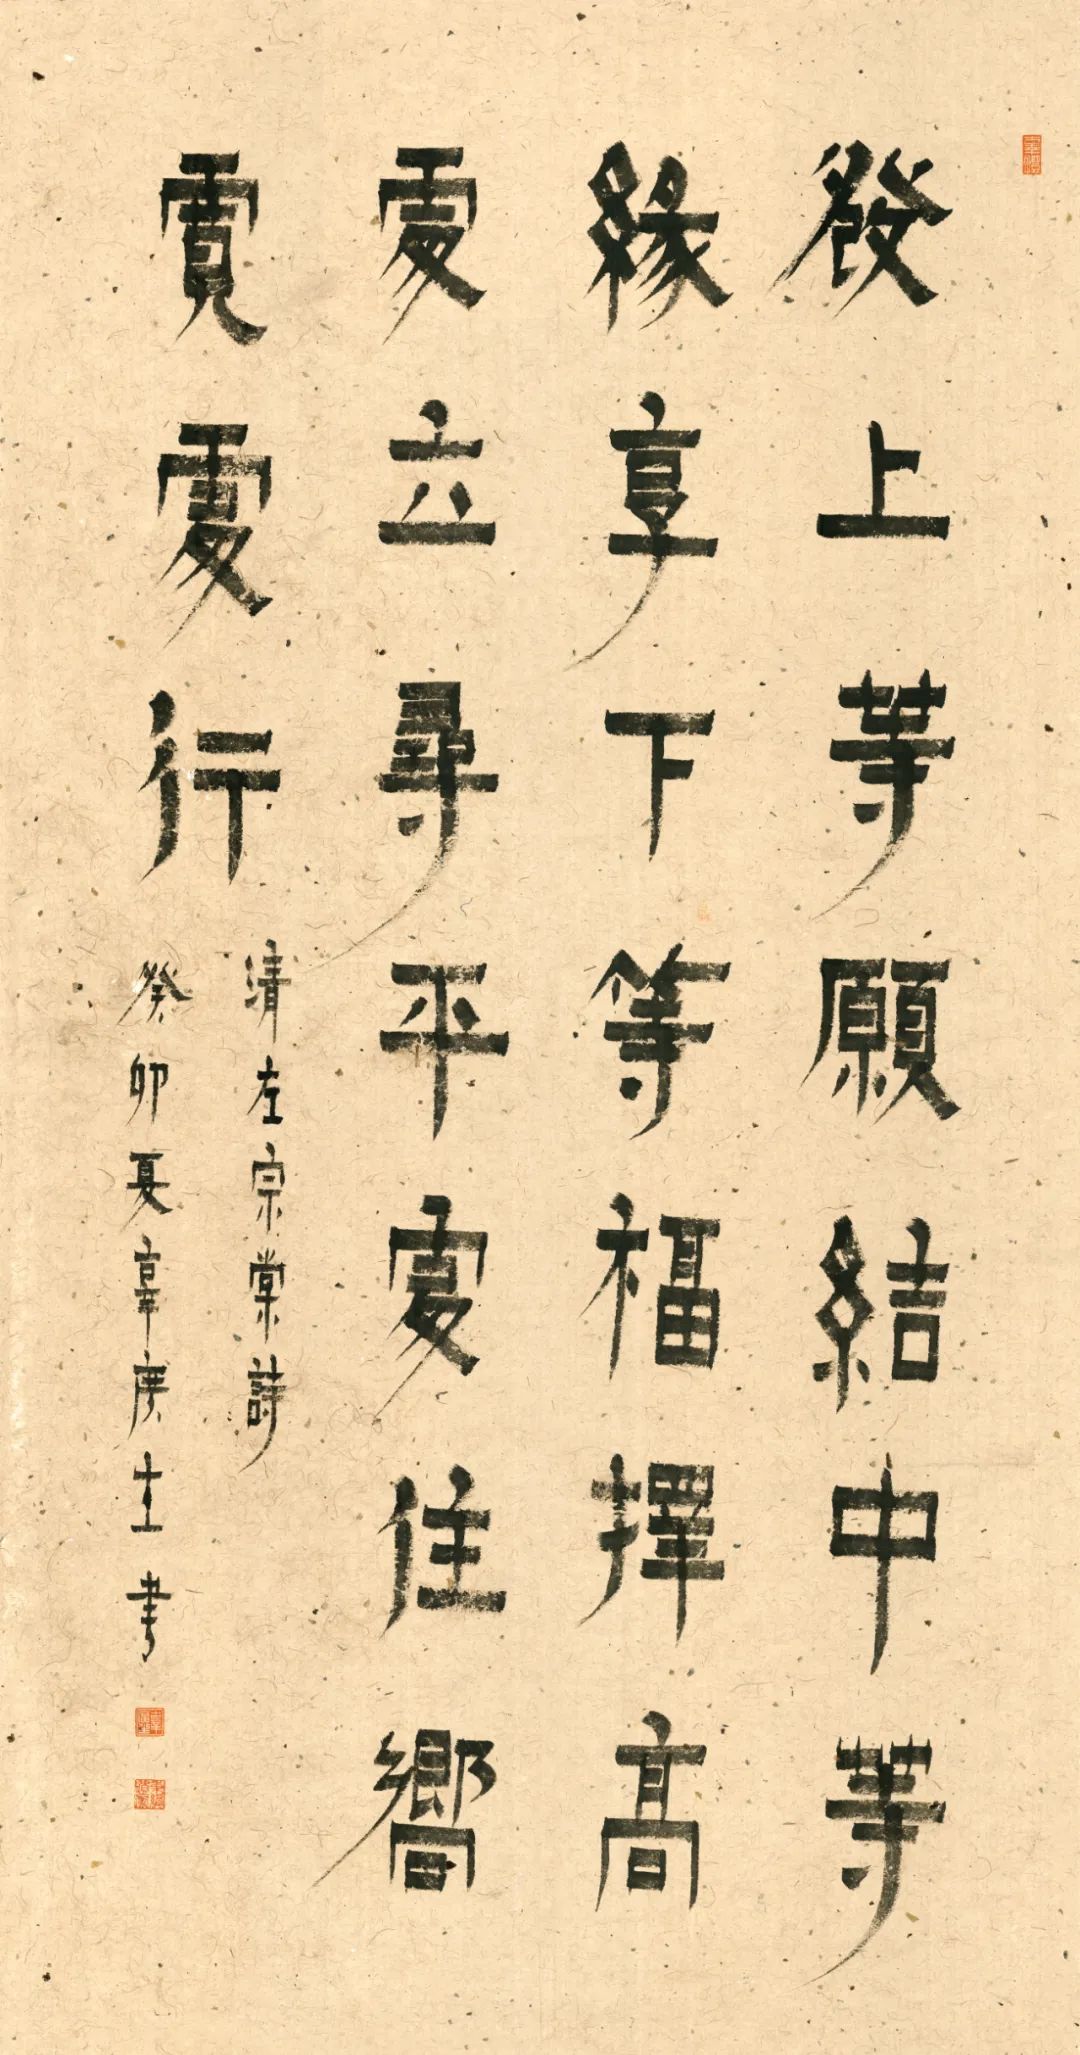 發上等願結中等
緣享下等福擇高
處立尋平處住嚮
寬處行
清左宗棠詩
癸卯夏辜庚士書